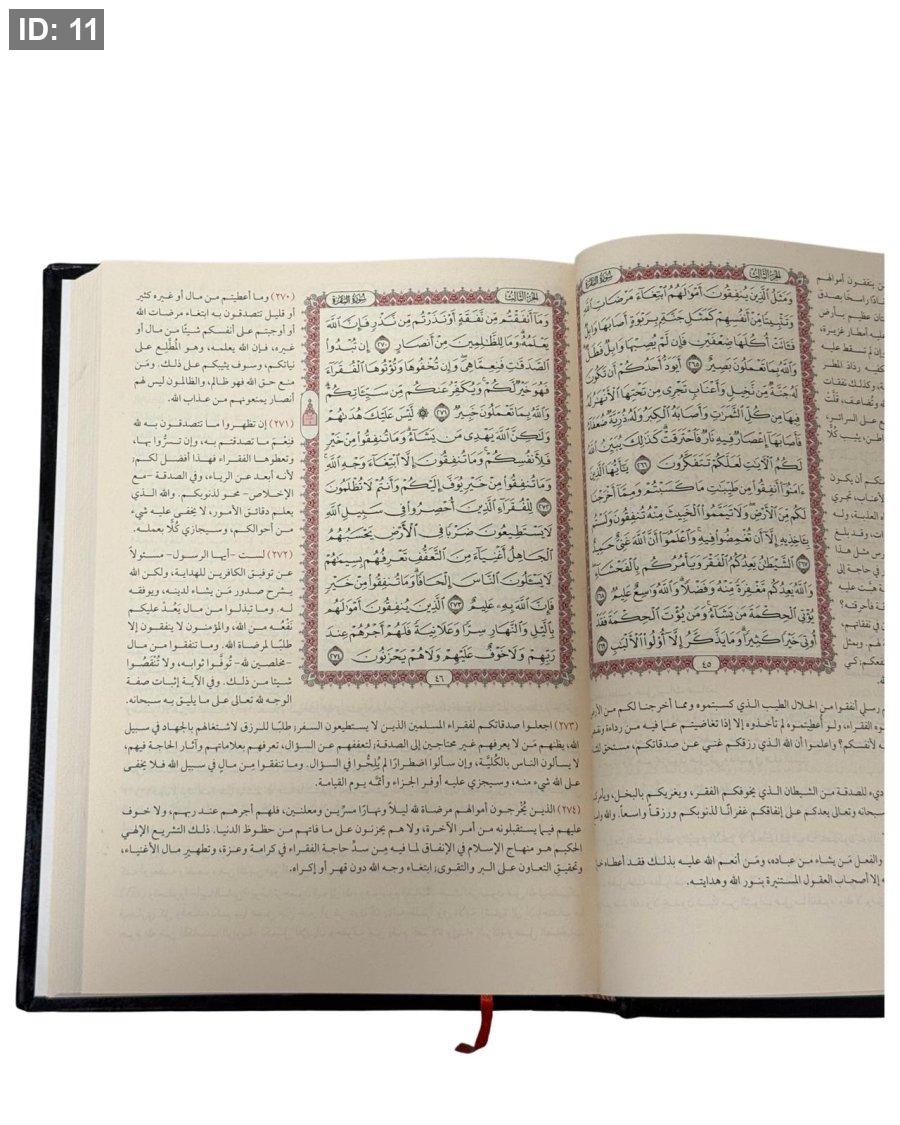 ID: 11
الجزء الثالث
سورة البقرة
وَمَثَلُ الَّذِينَ يُنفِقُونَ أَمْوَالَهُمُ ابْتِغَاءَ مَرْضَاتِ اللَّهِ
وَتَثْبِيتًا مِّنْ أَنفُسِهِمْ كَمَثَلِ جَنَّةٍ بِرَبْوَةٍ أَصَابَهَا وَابِلٌ
فَآتَتْ أُكُلَهَا ضِعْفَيْنِ فَإِن لَّمْ يُصِبْهَا وَابِلٌ فَطَلٌّ
وَاللَّهُ بِمَا تَعْمَلُونَ بَصِيرٌ ٢٦٥ أَيَوَدُّ أَحَدُكُمْ أَن تَكُونَ
لَهُ جَنَّةٌ مِّن نَّخِيلٍ وَأَعْنَابٍ تَجْرِي مِن تَحْتِهَا الْأَنْهَارُ لَهُ
فِيهَا مِن كُلِّ الثَّمَرَاتِ وَأَصَابَهُ الْكِبَرُ وَلَهُ ذُرِّيَّةٌ ضُعَفَاءُ
فَأَصَابَهَا إِعْصَارٌ فِيهِ نَارٌ فَاحْتَرَقَتْ كَذَٰلِكَ يُبَيِّنُ اللَّهُ
لَكُمُ الْآيَاتِ لَعَلَّكُمْ تَتَفَكَّرُونَ ٢٦٦ يَا أَيُّهَا الَّذِينَ
آمَنُوا أَنفِقُوا مِن طَيِّبَاتِ مَا كَسَبْتُمْ وَمِمَّا أَخْرَجْنَا
لَكُم مِّنَ الْأَرْضِ وَلَا تَيَمَّمُوا الْخَبِيثَ مِنْهُ تُنفِقُونَ وَلَسْتُم
بِآخِذِيهِ إِلَّا أَن تُغْمِضُوا فِيهِ وَاعْلَمُوا أَنَّ اللَّهَ غَنِيٌّ حَمِيدٌ
٢٦٧ الشَّيْطَانُ يَعِدُكُمُ الْفَقْرَ وَيَأْمُرُكُم بِالْفَحْشَاءِ
وَاللَّهُ يَعِدُكُم مَّغْفِرَةً مِّنْهُ وَفَضْلًا وَاللَّهُ وَاسِعٌ عَلِيمٌ ٢٦٨
يُؤْتِي الْحِكْمَةَ مَن يَشَاءُ وَمَن يُؤْتَ الْحِكْمَةَ فَقَدْ
أُوتِيَ خَيْرًا كَثِيرًا وَمَا يَذَّكَّرُ إِلَّا أُولُو الْأَلْبَابِ ٢٦٩
٤٥
رسلي أنفقوا من الحلال الطيب الذي كسبتموه ومما أخرجنا لكم من الأرض
الفقراء، ولو أُعطيتموه لم تأخذوه إلا إذا تغاضيتم عما فيه من رداءة
لأنفسكم؟ واعلموا أن الله الذي رزقكم غني عن صدقاتكم، مستحق
للصدقة من الشيطان الذي يخوفكم الفقر، ويغريكم بالبخل،
سبحانه وتعالى يعدكم على إنفاقكم غفرانًا لذنوبكم ورزقاً واسعاً.
والفعل مَن يشاء من عباده، ومَن أنعم الله عليه بذلك فقد
إلا أصحاب العقول المستنيرة بنور الله وهدايته.
الجزء الثالث
سورة البقرة
وَمَا أَنفَقْتُم مِّن نَّفَقَةٍ أَوْ نَذَرْتُم مِّن نَّذْرٍ فَإِنَّ اللَّهَ
يَعْلَمُهُ وَمَا لِلظَّالِمِينَ مِنْ أَنصَارٍ ٢٧٠ إِن تُبْدُوا
الصَّدَقَاتِ فَنِعِمَّا هِيَ وَإِن تُخْفُوهَا وَتُؤْتُوهَا الْفُقَرَاءَ
فَهُوَ خَيْرٌ لَّكُمْ وَيُكَفِّرُ عَنكُم مِّن سَيِّئَاتِكُمْ
وَاللَّهُ بِمَا تَعْمَلُونَ خَبِيرٌ ٢٧١ ۞ لَّيْسَ عَلَيْكَ هُدَاهُمْ
وَلَٰكِنَّ اللَّهَ يَهْدِي مَن يَشَاءُ وَمَا تُنفِقُوا مِنْ خَيْرٍ
فَلِأَنفُسِكُمْ وَمَا تُنفِقُونَ إِلَّا ابْتِغَاءَ وَجْهِ اللَّهِ
وَمَا تُنفِقُوا مِنْ خَيْرٍ يُوَفَّ إِلَيْكُمْ وَأَنتُمْ لَا تُظْلَمُونَ
٢٧٢ لِلْفُقَرَاءِ الَّذِينَ أُحْصِرُوا فِي سَبِيلِ اللَّهِ
لَا يَسْتَطِيعُونَ ضَرْبًا فِي الْأَرْضِ يَحْسَبُهُمُ
الْجَاهِلُ أَغْنِيَاءَ مِنَ التَّعَفُّفِ تَعْرِفُهُم بِسِيمَاهُمْ
لَا يَسْأَلُونَ النَّاسَ إِلْحَافًا وَمَا تُنفِقُوا مِنْ خَيْرٍ
فَإِنَّ اللَّهَ بِهِ عَلِيمٌ ٢٧٣ الَّذِينَ يُنفِقُونَ أَمْوَالَهُم
بِاللَّيْلِ وَالنَّهَارِ سِرًّا وَعَلَانِيَةً فَلَهُمْ أَجْرُهُمْ عِندَ
رَبِّهِمْ وَلَا خَوْفٌ عَلَيْهِمْ وَلَا هُمْ يَحْزَنُونَ ٢٧٤
٤٦
(٢٧٠) وما أعطيتم من مال أو غيره كثير
أو قليل تتصدقون به ابتغاء مرضات الله
أو أوجبتم على أنفسكم شيئًا من مال أو
غيره، فإن الله يعلمه، وهو المُطَّلِع على
نياتكم، وسوف يثيبكم على ذلك. ومَن
منع حق الله فهو ظالم، والظالمون ليس لهم
أنصار يمنعونهم من عذاب الله.
(٢٧١) إن تظهروا ما تتصدقون به لله
فنِعْمَ ما تصدقتم به، وإن تسرُّوا بها،
وتعطوها الفقراء فهذا أفضل لكم؛
لأنه أبعد عن الرياء، وفي الصدقة -مع
الإخلاص- محو لذنوبكم. والله الذي
يعلم دقائق الأمور، لا يخفى عليه شيء
من أحوالكم، وسيجازي كُلًّا بعمله.
(٢٧٢) لست -أيها الرسول- مسئولاً
عن توفيق الكافرين للهداية، ولكن الله
يشرح صدور مَن يشاء لدينه، ويوفقه
له. وما تبذلوا من مال يَعُدْ عليكم
نَفْعُه من الله، والمؤمنون لا ينفقون إلا
طلبًا لمرضاة الله. وما تنفقوا من مال
-مخلصين لله- تُوَفَّوا ثوابه، ولا تُنْقَصُوا
شيئا من ذلك. وفي الآية إثبات صفة
الوجه لله تعالى على ما يليق به سبحانه.
(٢٧٣) اجعلوا صدقاتكم لفقراء المسلمين الذين لا يستطيعون السفر؛ طلبًا للرزق لاشتغالهم بالجهاد في سبيل
الله، يظنهم مَن لا يعرفهم غير محتاجين إلى الصدقة؛ لتعففهم عن السؤال، تعرفهم بعلاماتهم وآثار الحاجة فيهم،
لا يسألون الناس بالكُليَّة، وإن سألوا اضطرارًا لم يُلِحُّوا في السؤال. وما تنفقوا مِن مالٍ في سبيل الله فلا يخفى
على الله شيء منه، وسيجزي عليه أوفر الجزاء وأتمَّه يوم القيامة.
(٢٧٤) الذين يُخْرجون أموالهم مرضاة لله ليلاً ونهارًا مسرِّين ومعلنين، فلهم أجرهم عند ربهم، ولا خوف
عليهم فيما يستقبلونه من أمر الآخرة، ولا هم يحزنون على ما فاتهم من حظوظ الدنيا. ذلك التشريع الإلهي
الحكيم هو منهاج الإسلام في الإنفاق لما فيه مِن سدِّ حاجة الفقراء في كرامة وعزة، وتطهير مال الأغنياء،
وتحقيق التعاون على البر والتقوى؛ ابتغاء وجه الله دون قهر أو إكراه.